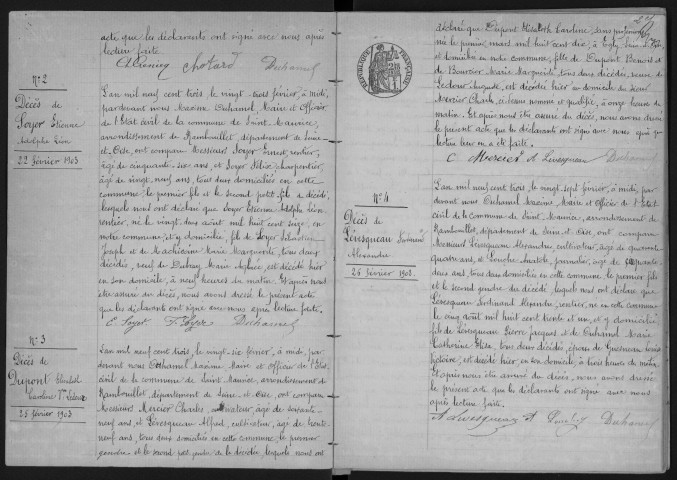 acte que les déclarants ont signé avec nous après
lecture faite.
Chotard Duhamel
N° 2
Décès de
Soyer Etienne
Adolphe Léon
22 février 1903
L'an mil neuf cent trois, le vingt-trois février, à midi,
pardevant nous Maxime Duhamel, Maire et Officier
de l'Etat civil de la commune de Saint-Maurice,
arrondissement de Rambouillet, département de Seine-
et-Oise, ont comparu Messieurs Soyer Ernest, rentier,
âgé de cinquante-six ans, et Soyer Félix, charpentier,
âgé de vingt-neuf ans, tous deux domiciliés en cette
commune, le premier fils et le second petit-fils du décédé,
lesquels nous ont déclaré que Soyer Etienne Adolphe Léon
rentier, né le vingt-deux août mil huit cent seize, en
notre commune, y domicilié, fils de Soyer Sébastien
Joseph et de Marie Marguerite, tous deux
décédés, veuf de Dubray Marie Aglaée, est décédé hier
en son domicile, à neuf heures du matin. Et après nous
être assuré du décès, nous avons dressé le présent acte
que les déclarants ont signé avec nous après lecture faite.
E. Soyer F. Soyer Duhamel
N° 3
Décès de
Dupont Elisabeth
Caroline Vve Lecleux
25 février 1903
L'an mil neuf cent trois, le vingt-six février, à midi, par
devant nous Duhamel Maxime Maire et Officier de l'Etat
civil de la commune de Saint-Maurice, arrondissement de
Rambouillet, département de Seine-et-Oise, ont comparu
Messieurs Mercier Charles, cultivateur, âgé de soixante-
neuf ans, et Lévesqueau Alfred, cultivateur, âgé de trente-
neuf ans, tous deux domiciliés en cette commune, le premier
gendre et le second petit-gendre de la décédée, lesquels nous ont
déclaré que Dupont Elisabeth Caroline, sans profession,
née le premier mars mil huit cent dix, à
et domiciliée en notre commune, fille de Dupont Benoit et
de Bourcier Marie Marguerite, tous deux décédés, veuve de
Auguste, est décédée hier en domicile du sieur
Mercier Charles, ci-dessus nommé et qualifié, à onze heures du
matin. Et après nous être assuré du décès, nous avons dressé
le présent acte que les déclarants ont signé avec nous après
lecture leur en a été faite.
C. Mercier A. Lévesqueau Duhamel
RÉPUBLIQUE FRANÇAISE
N° 4
Décès de
Lévesqueau Ferdinand
Alexandre
26 février 1903
L'an mil neuf cent trois, le vingt-sept février, à midi, par
devant nous Duhamel Maxime Maire et Officier de l'Etat
civil de la commune de Saint-Maurice, arrondissement de
Rambouillet, département de Seine-et-Oise, ont comparu
Messieurs Lévesqueau Alexandre, cultivateur, âgé de quarante-
quatre ans, et Anatole, journalier, âgé de
deux ans, tous deux domiciliés en cette commune, le premier fils
et le second du décédé, lesquels nous ont déclaré que
Lévesqueau Ferdinand Alexandre, rentier, né en cette commune
le cinq août mil huit cent trente et un, et y domicilié,
fils de Lévesqueau Pierre Jacques et de Duhamel Marie
Catherine Elisa, tous deux décédés, époux de Louise
Victoire, est décédé hier, en son domicile, à trois heures du matin.
Et après nous être assuré du décès, nous avons dressé
le présent acte que les déclarants ont signé avec nous
après lecture faite.
A. Lévesqueau A. Duhamel